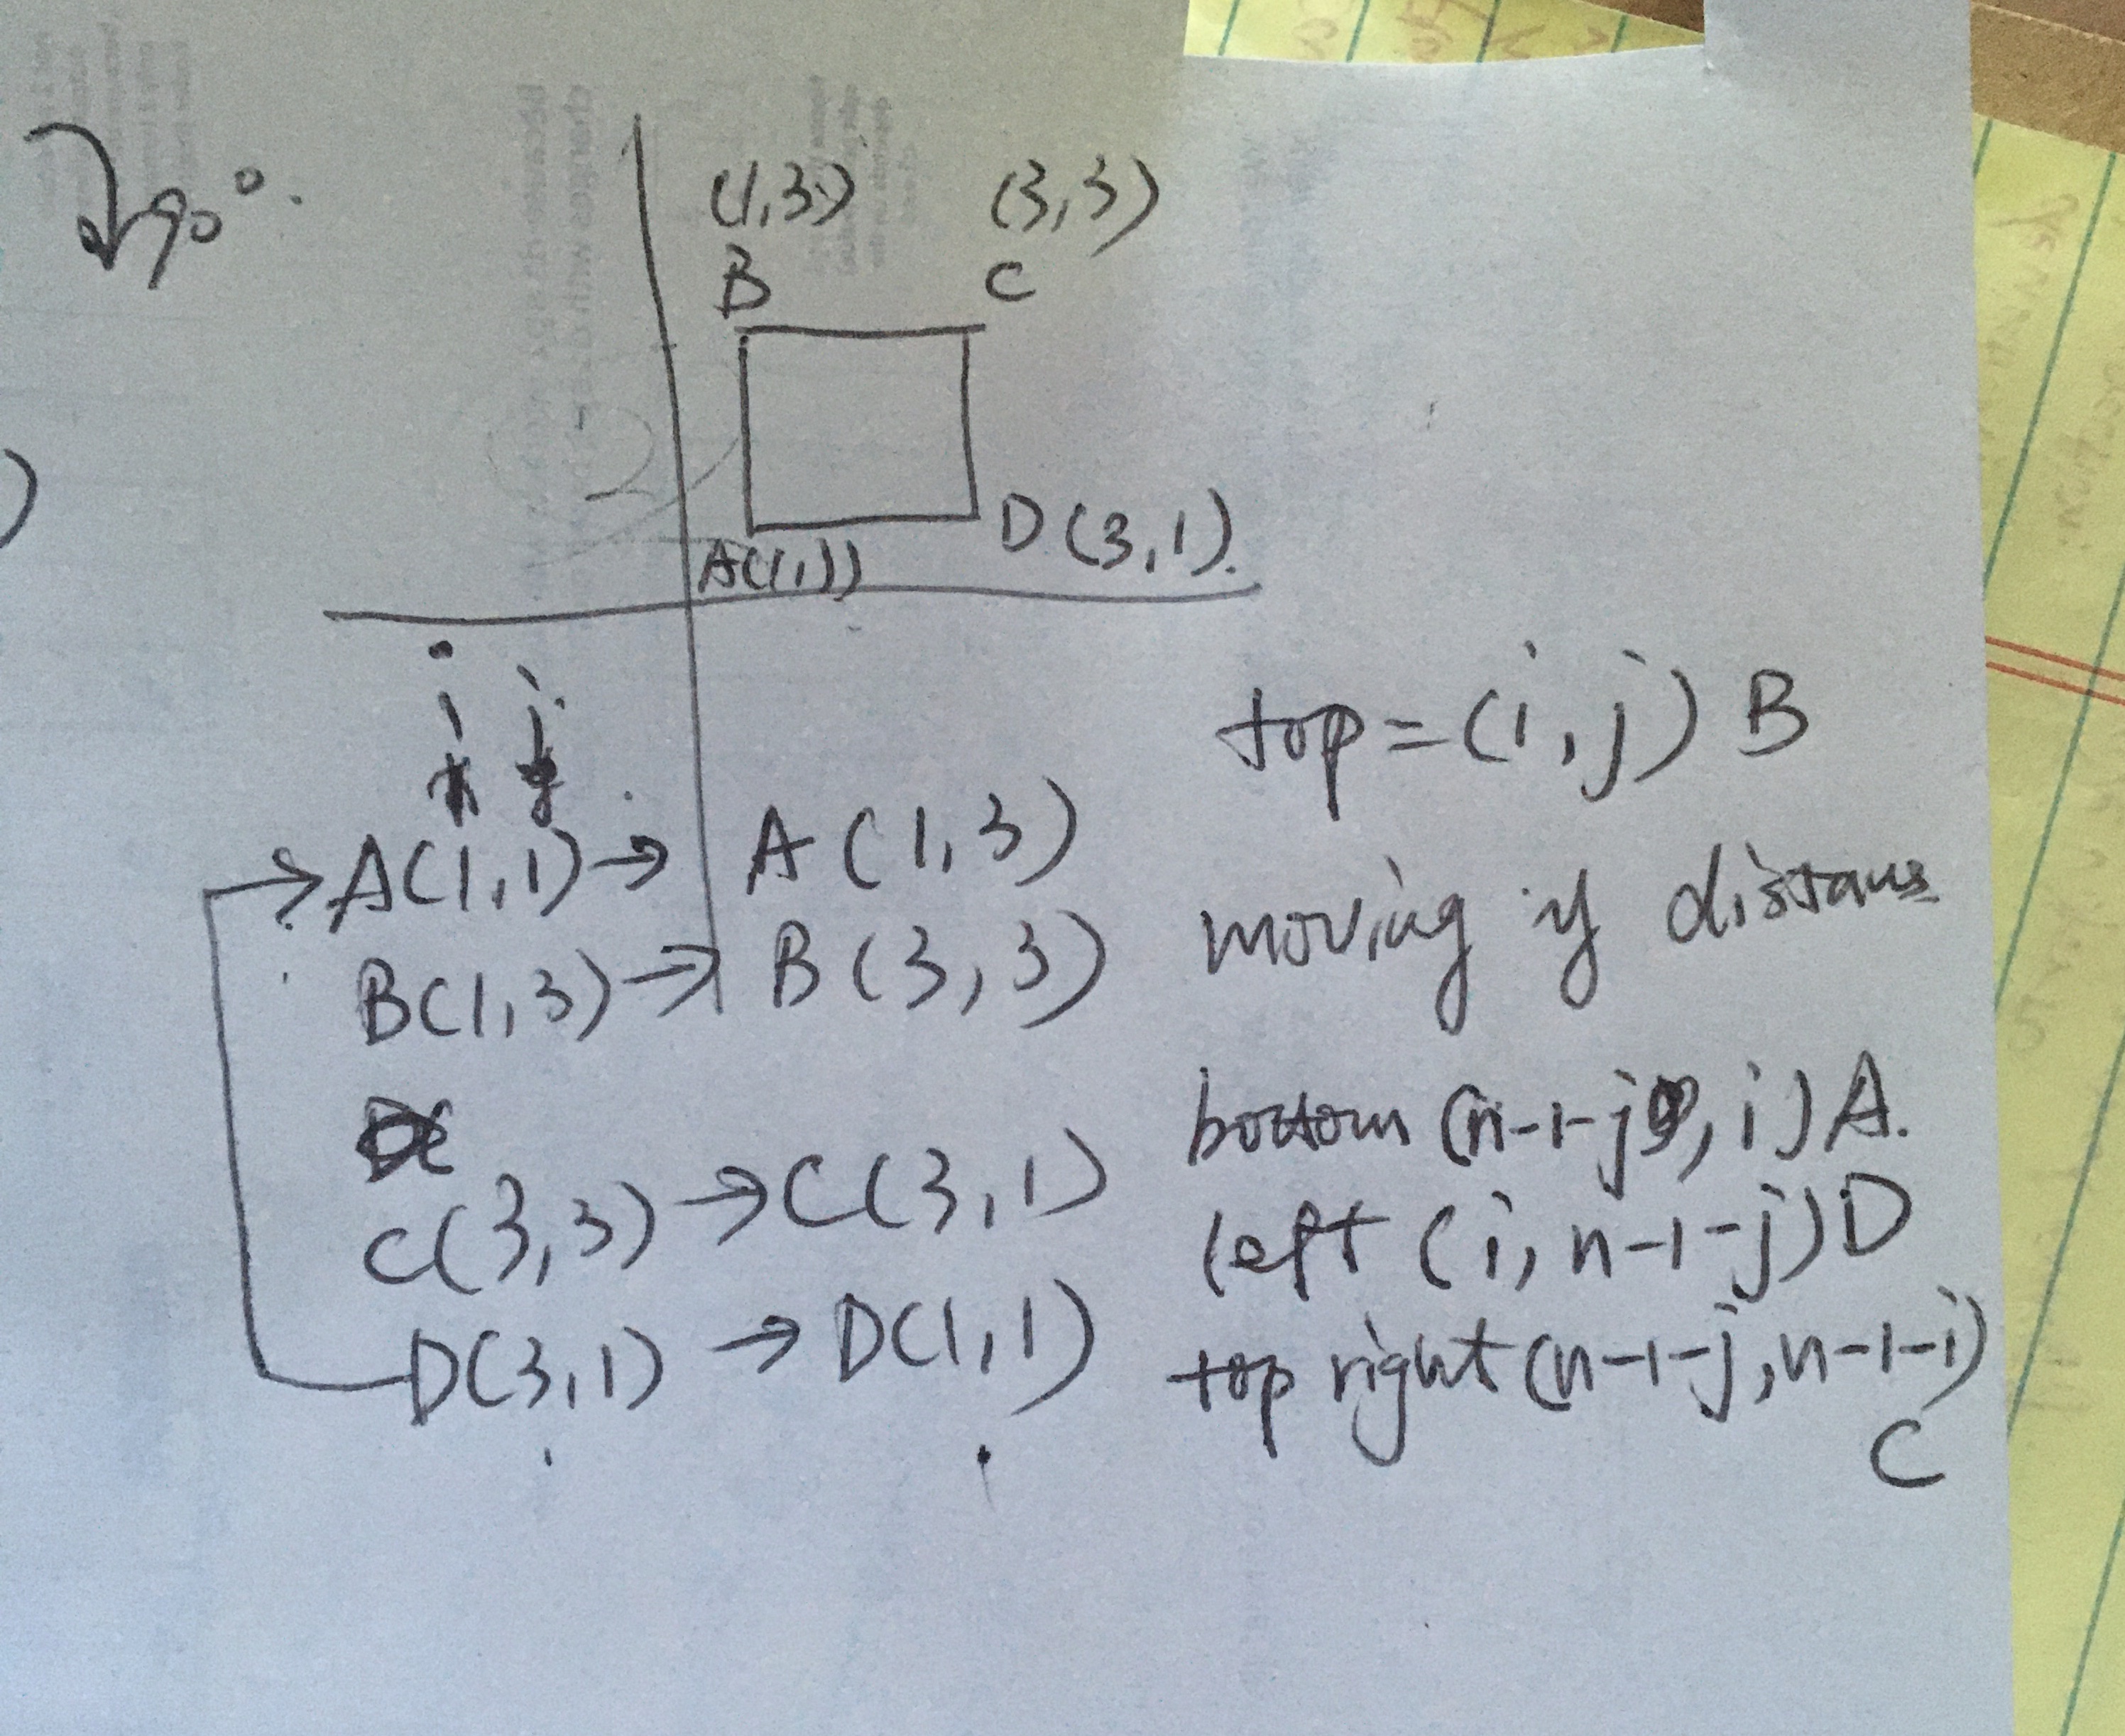 90°.
(1,3) (3,3)
B C
A(1,1) D(3,1).
i j
A(1,1) → A(1,3)
B(1,3) → B(3,3)
C(3,3) → C(3,1)
D(3,1) → D(1,1)
top = (i,j) B
moving
bottom (n-1-j, i) A.
left (i, n-1-j) D
top right (n-1-j, n-1-i)
C